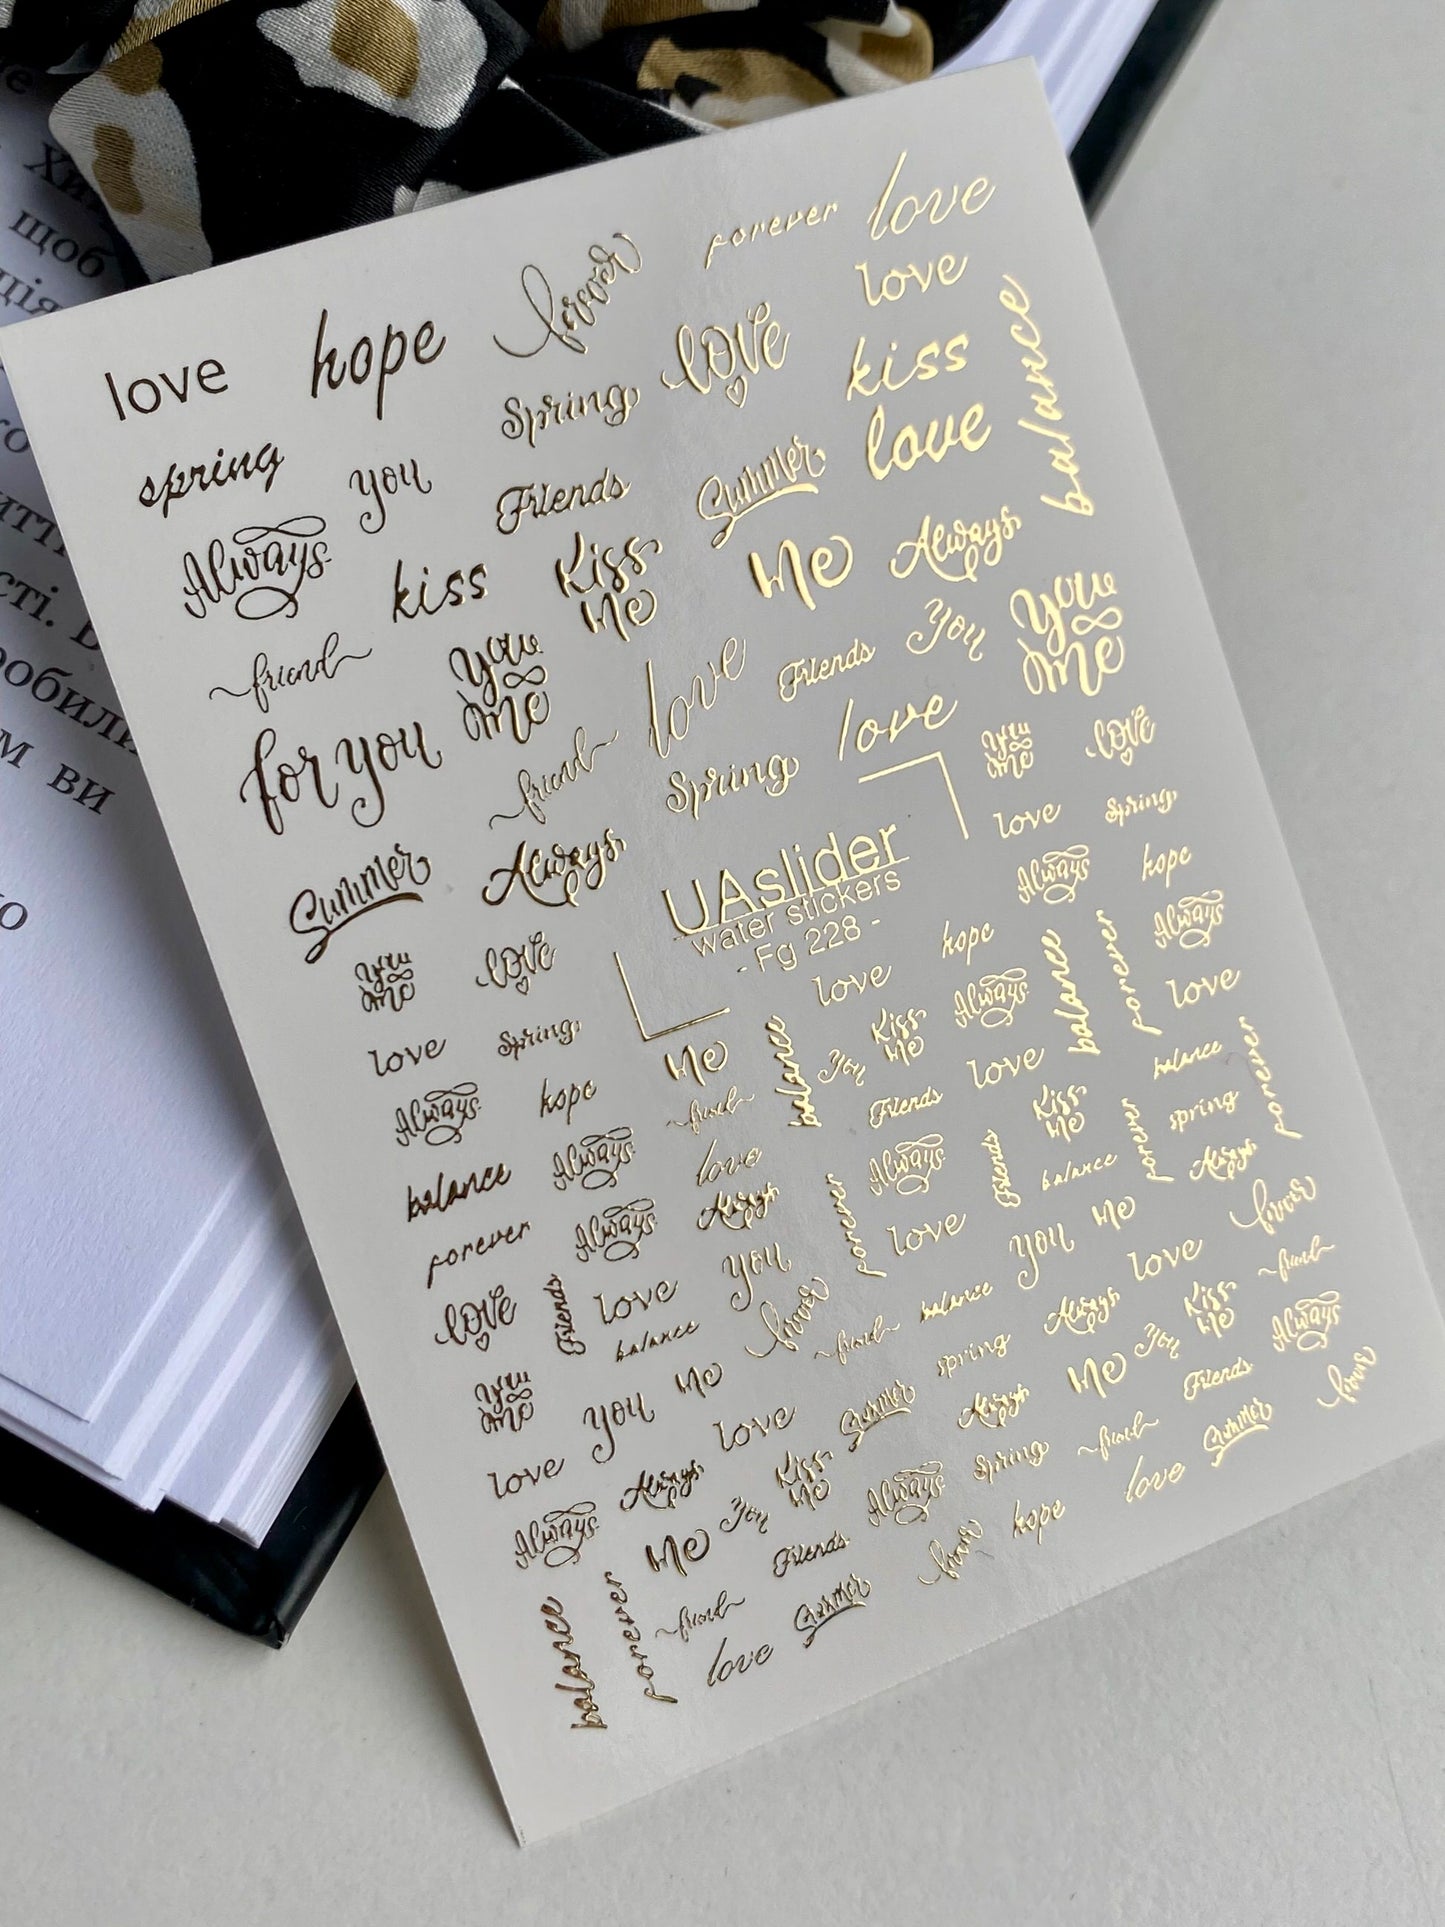 щоб
ція
сті.
робили
м ви
love hope forever forever love
love
spring you Spring LOVE kiss
balance
Always Friends Summer love
kiss Kiss Me Me Always
friend you & me love Friends You you & me
for you friend Spring love
Summer Always
UAslider
water stickers
- Fg 228 -
you & me LOVE
love Spring
Always hope
you & me LOVE hope Always
love Spring love Always balance forever love
Always hope Me balance You Kiss Me love balance forever
friend Friends Kiss Me spring
balance Always love Always Friends balance forever Always
forever Always Always forever love you Me forever
LOVE Friends love you forever balance Always love friend
balance friend spring You Kiss Me Always
you & me you Me love Summer Always Me Friends forever
love Always Kiss Me Always Spring friend Summer
Always Me You Friends forever hope love
balance forever friend Summer
love